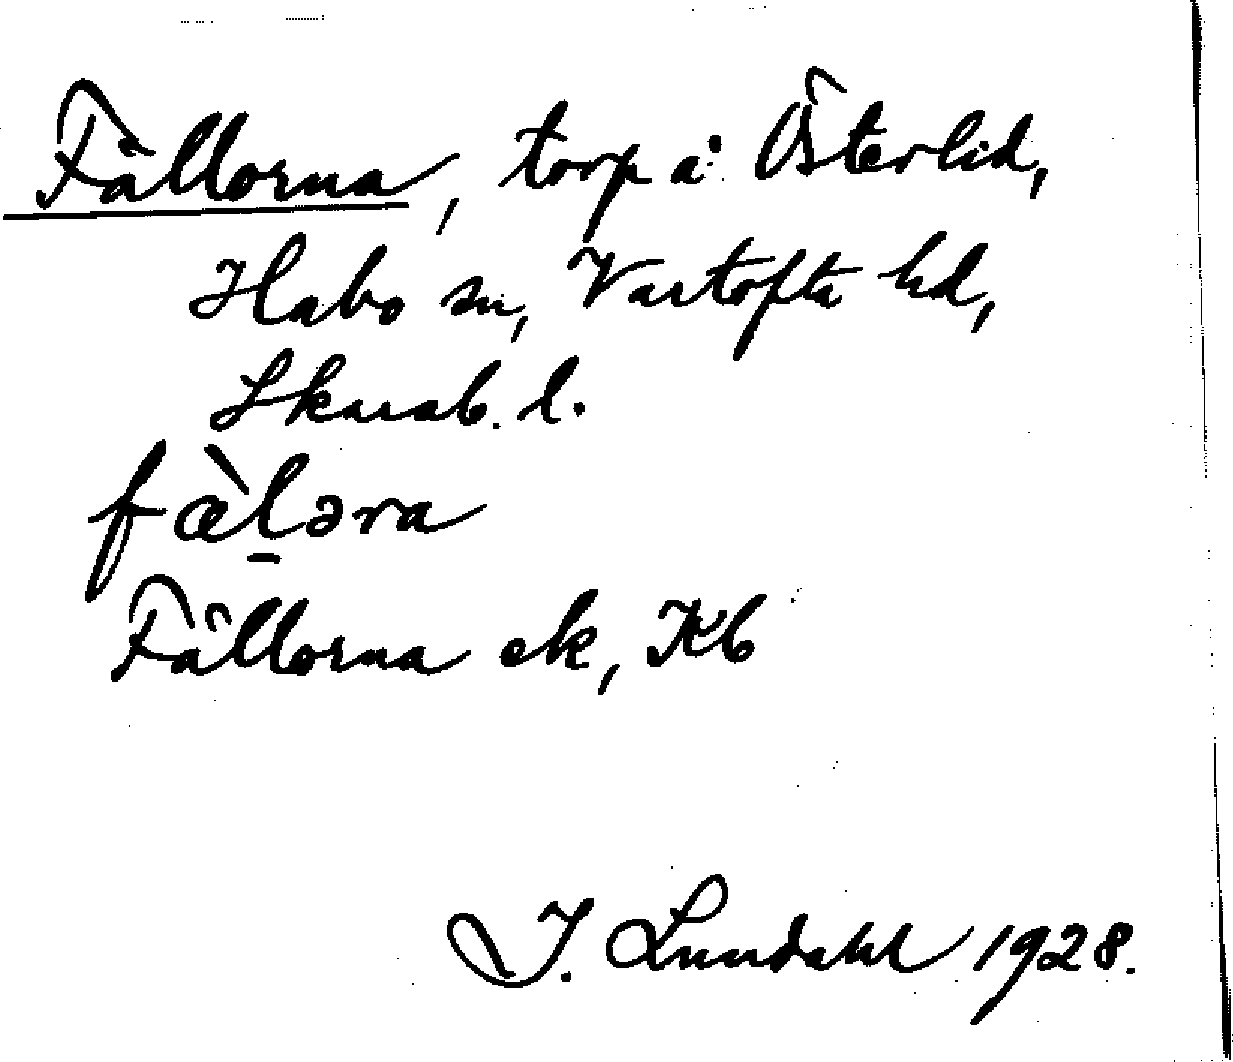 Fällorna, torp å Österlid,
Habo sn, Vartofta hd,
Skarab. l.
fæ̀l̠əra
Fällorna ek, Kb
I. Lundahl 1928.